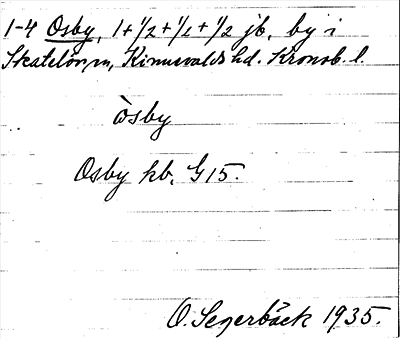 1-4 Osby, 1+1/2+1/2+1/2 jb. by i
Skatelövm, Kinnevalds hd. Kronob. l.
òsby
Osby hb. G15.
O. Segerbäck 1935.